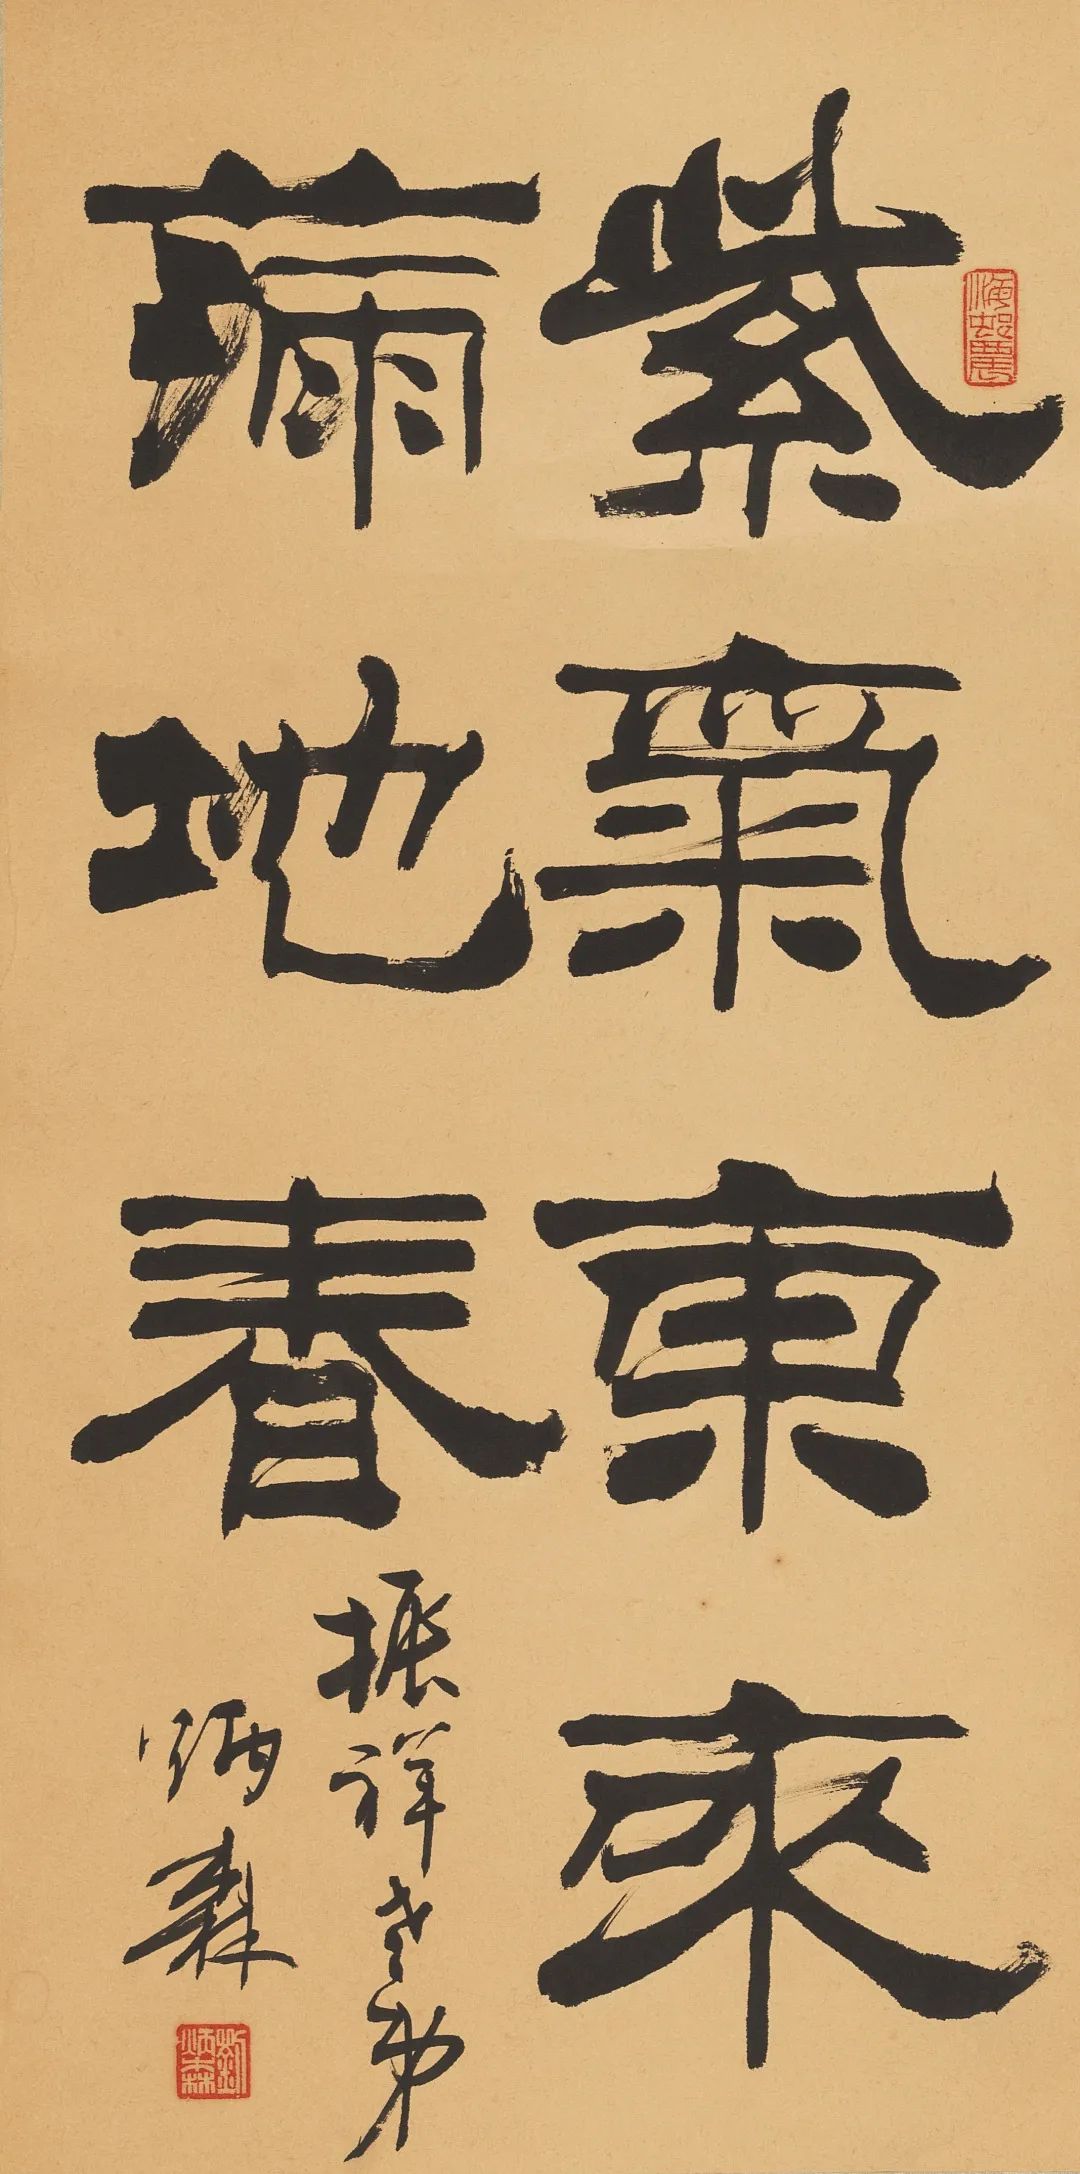 紫氣東來
滿地春
振祥老弟
炳森
海邨農
劉炳森